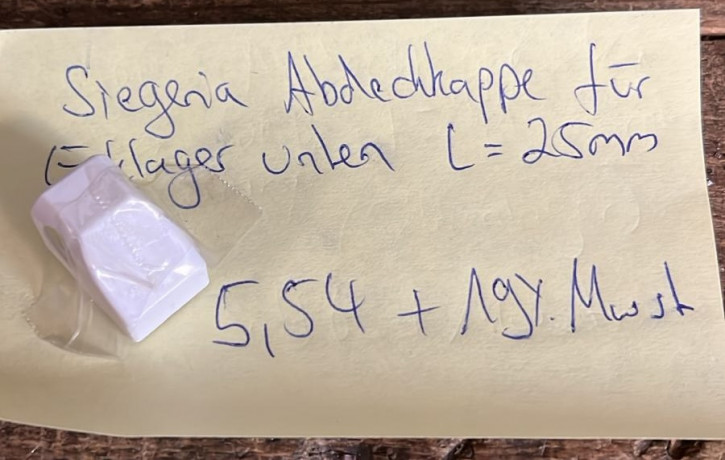 Siegenia Abdeckkappe für
Ecklager unten L = 25mm
5,54 + 19%. Mwst